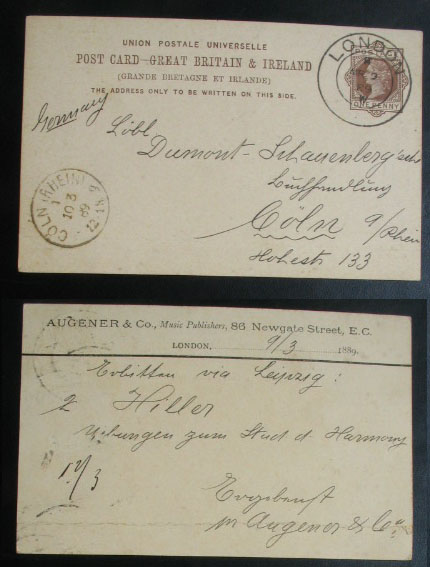 UNION POSTALE UNIVERSELLE
POST CARD—GREAT BRITAIN & IRELAND
(GRANDE BRETAGNE ET IRLANDE)
THE ADDRESS ONLY TO BE WRITTEN ON THIS SIDE.
LONDON
ONE PENNY
Germany
Löbl
Dumont-Schauenberg'sche
Buchhandlung
Cöln a/Rhein
Hohestr 133
CÖLN (RHEIN) 9
10 3
89
AUGENER & Co., Music Publishers, 86 Newgate Street, E.C.
LONDON, 9/3 1889.
Erbitten via Leipzig:
2 Hiller
Uebungen zum Stud d. Harmony
Ergebenst
Augener & Co